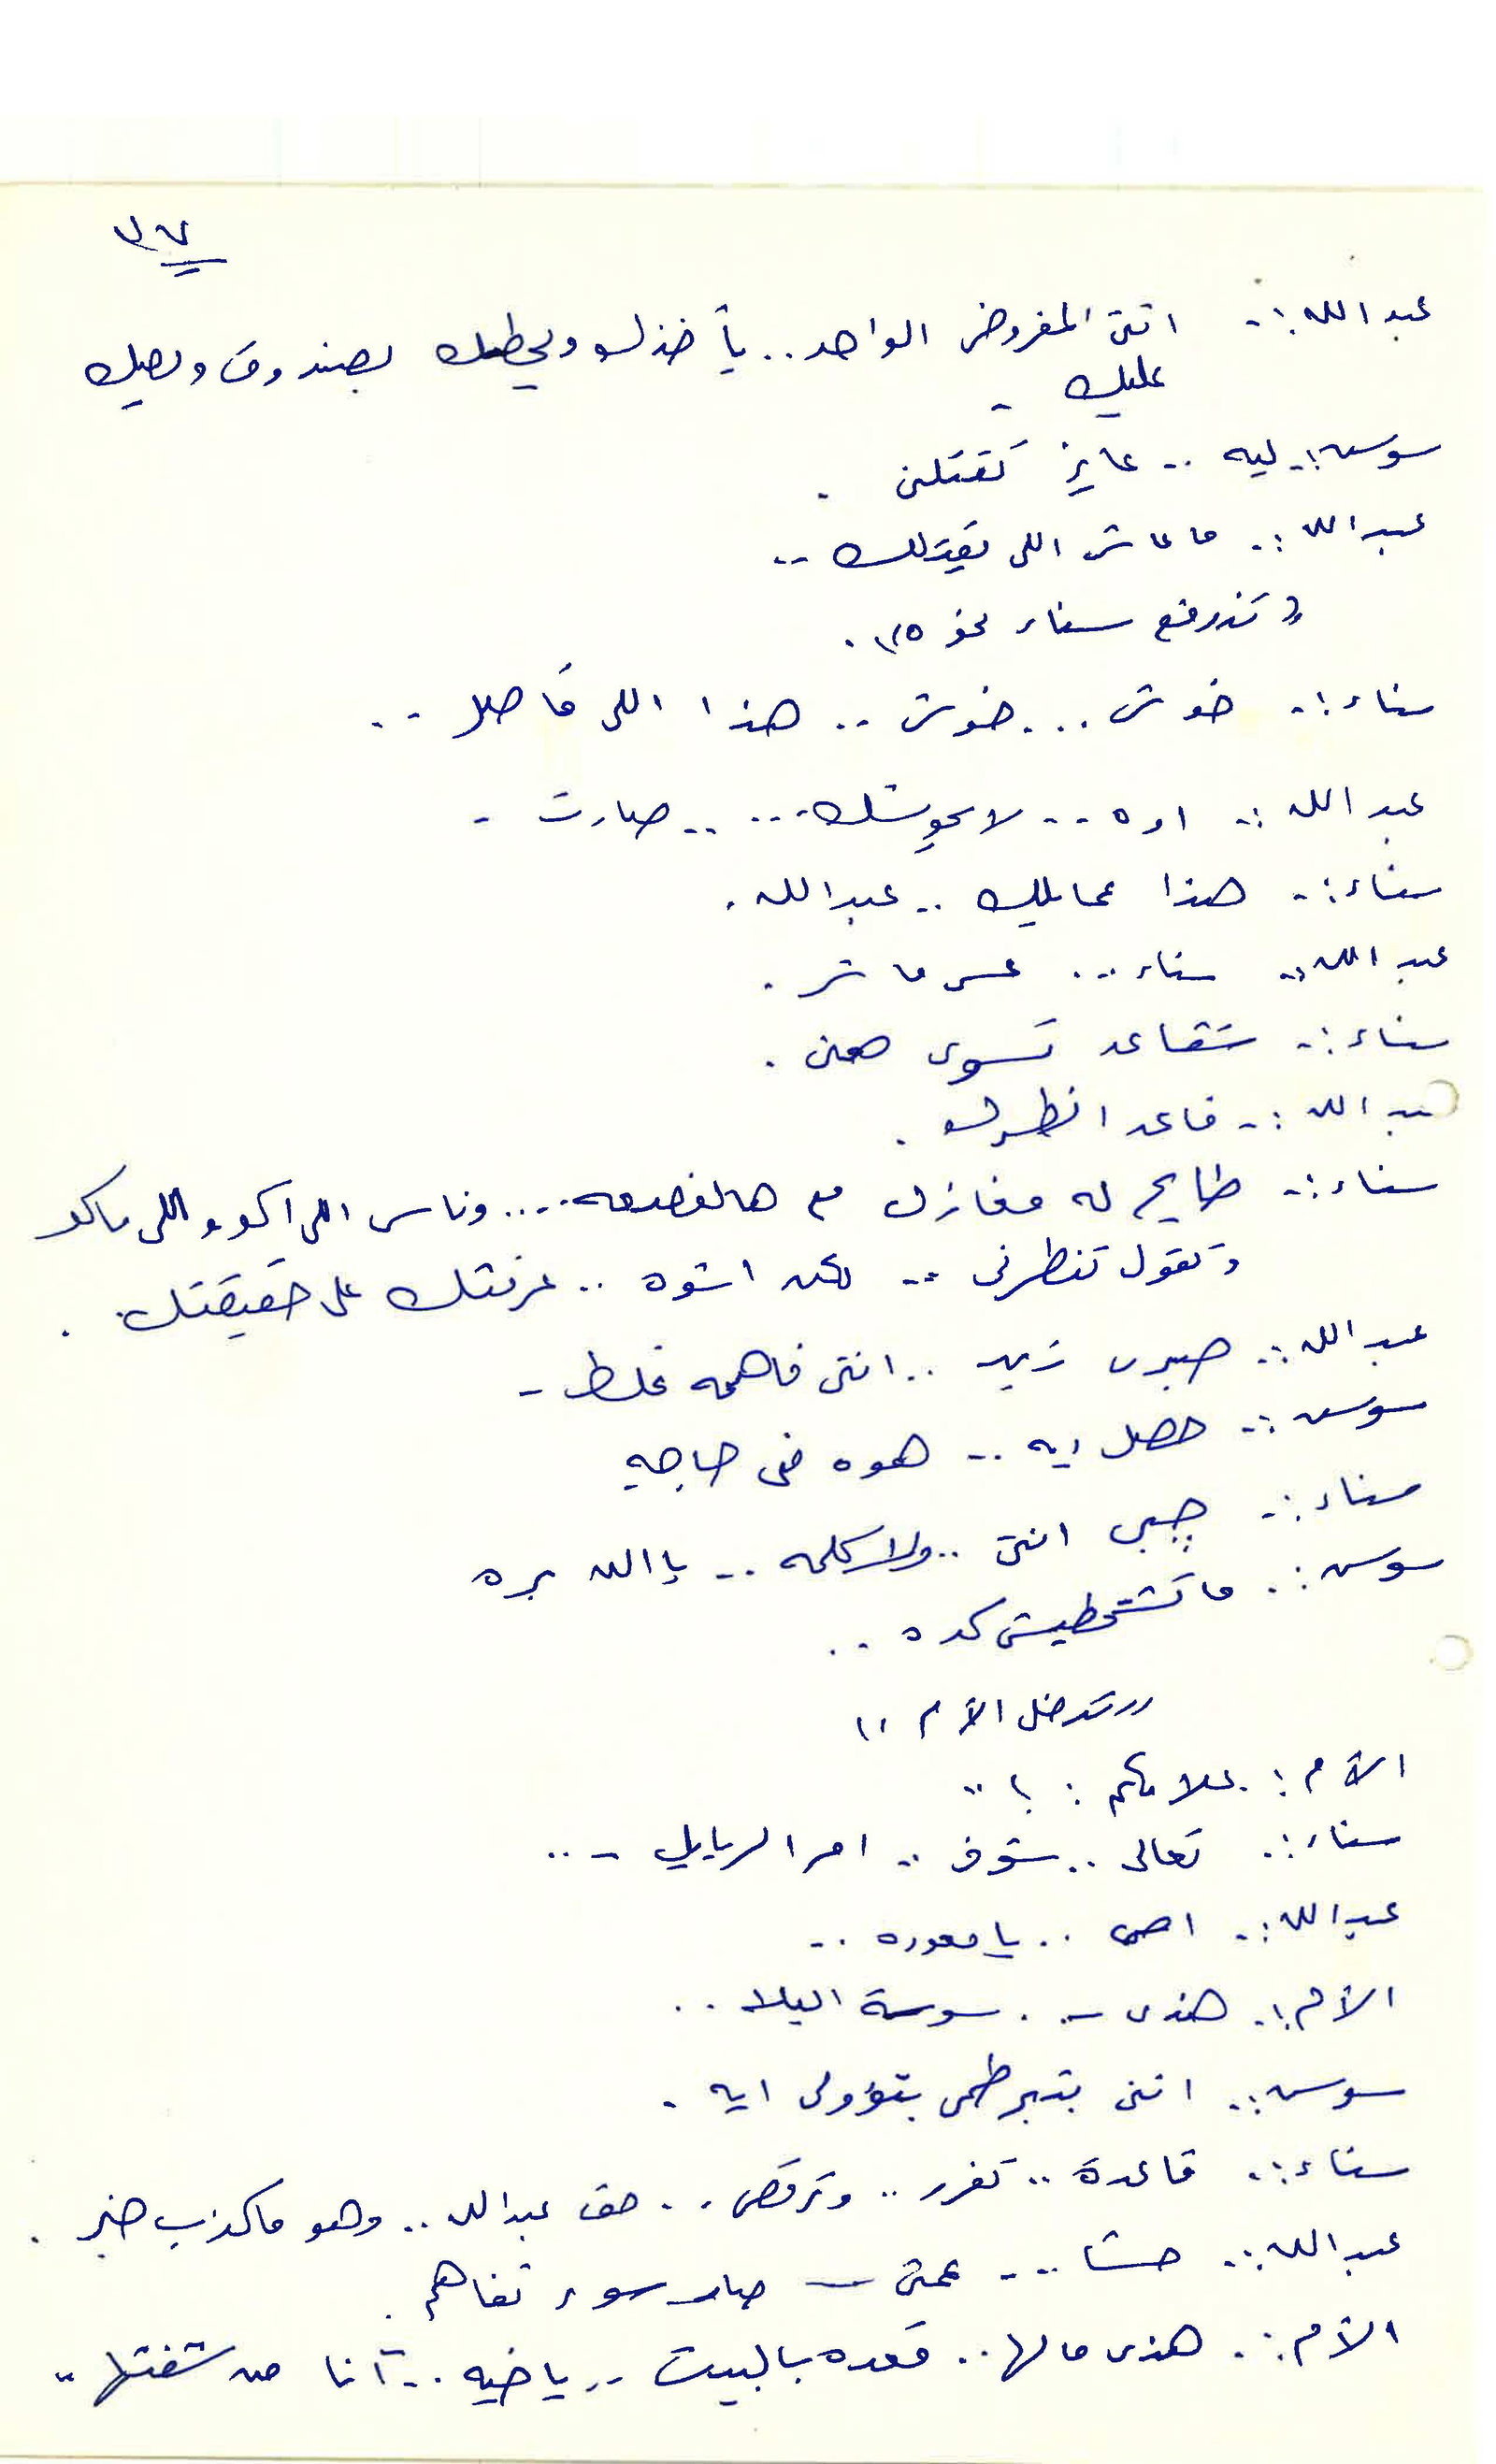 ٣٧
عبدالله :- انتي المفروض الواحد .. يأخذلو ويحطك بصندوق ويصك
عليك -
سوسن :- ليه .. عايز تقتلني .
عبدالله :- ما عاش اللي يقتلك ..
« تندفع سناء نحوه » .
سناء :- خوش ... خوش .. هذا اللي قاصر ..
عبدالله :- اوه .. لا ... صارت -
سناء :- هذا عمايلك .. عبدالله .
عبدالله :- سناء .. عسى ما شر .
سناء :- شقاعد تسوي هني .
عبدالله :- قاعد انطرك .
سناء :- طايح له مغازل مع هالفصعه .... وناسى اللي اكو واللي ماكو
وتقول تنطرني .. لكن اشوه .. عرفتك على حقيقتك .
عبدالله :- صبري زين .. انتي فاهمه غلط -
سوسن :- حصل ايه .. هوه في حاجه
سناء :- چبي انتي .. ولا كلمه .. ياالله بره
سوسن :- ما تشخطيش كده ..
« تدخل الأم »
الأم :- علامكم : ؟ ..
سناء :- تعالى .. شوفي .. امر الريايل - ..
عبدالله :- اصص .. يا معوده ..
الأم :- هذي - . سوسة البلا ..
سوسن :- انتي بتبرطمي بتؤولي ايه .
سناء :- قاعدة .. تغرر .. وترقص .. حق عبدالله .. وهو ماكذب خبر .
عبدالله :- حشا .. - عمتي - صار سوء تفاهم .
الأم :- هذي مالها .. قعده بالبيت .. ياخيه .. آنا من شفتها ..